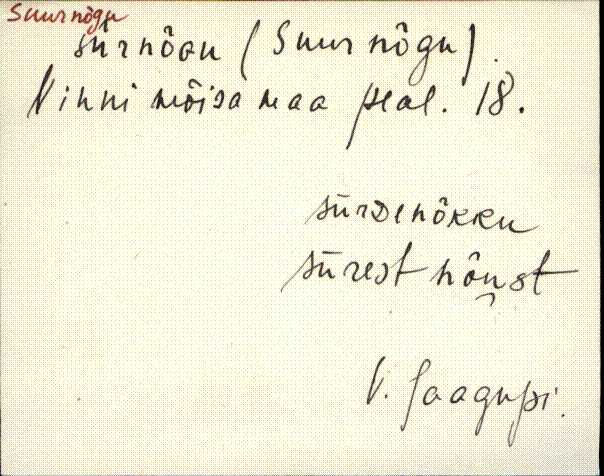 Suurnõgu
sürnõgu (Suurnõgu).
Vinni mõisa maa peal. 18.
sürdenõkku
sürest nõust
V. Jaagupi.